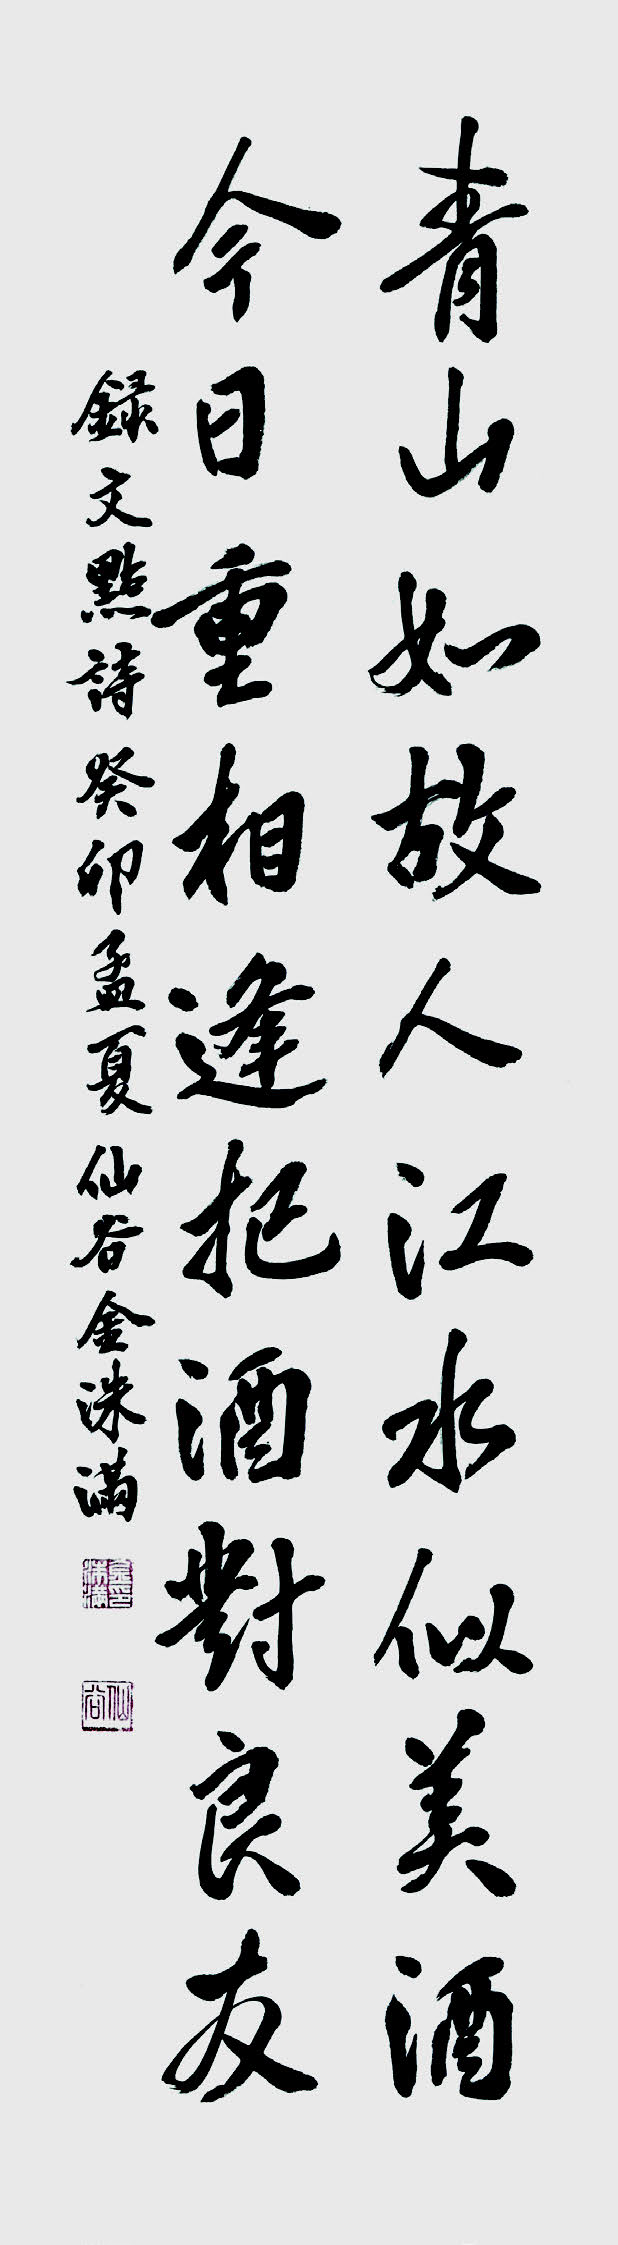 青山如故人江水似美酒
今日重相逢把酒對良友
録文點詩 癸卯孟夏 仙谷金洙滿
仙谷